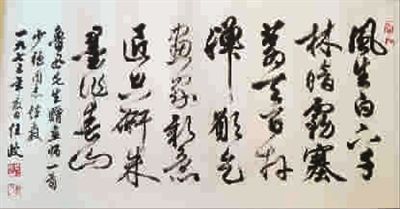 風生白下千
林暗霧塞
蒼天百卉
殫願乞
畫家新意
匠只研朱
墨作春山
魯迅先生贈畫師一首
少同志教
一九七三年春任政